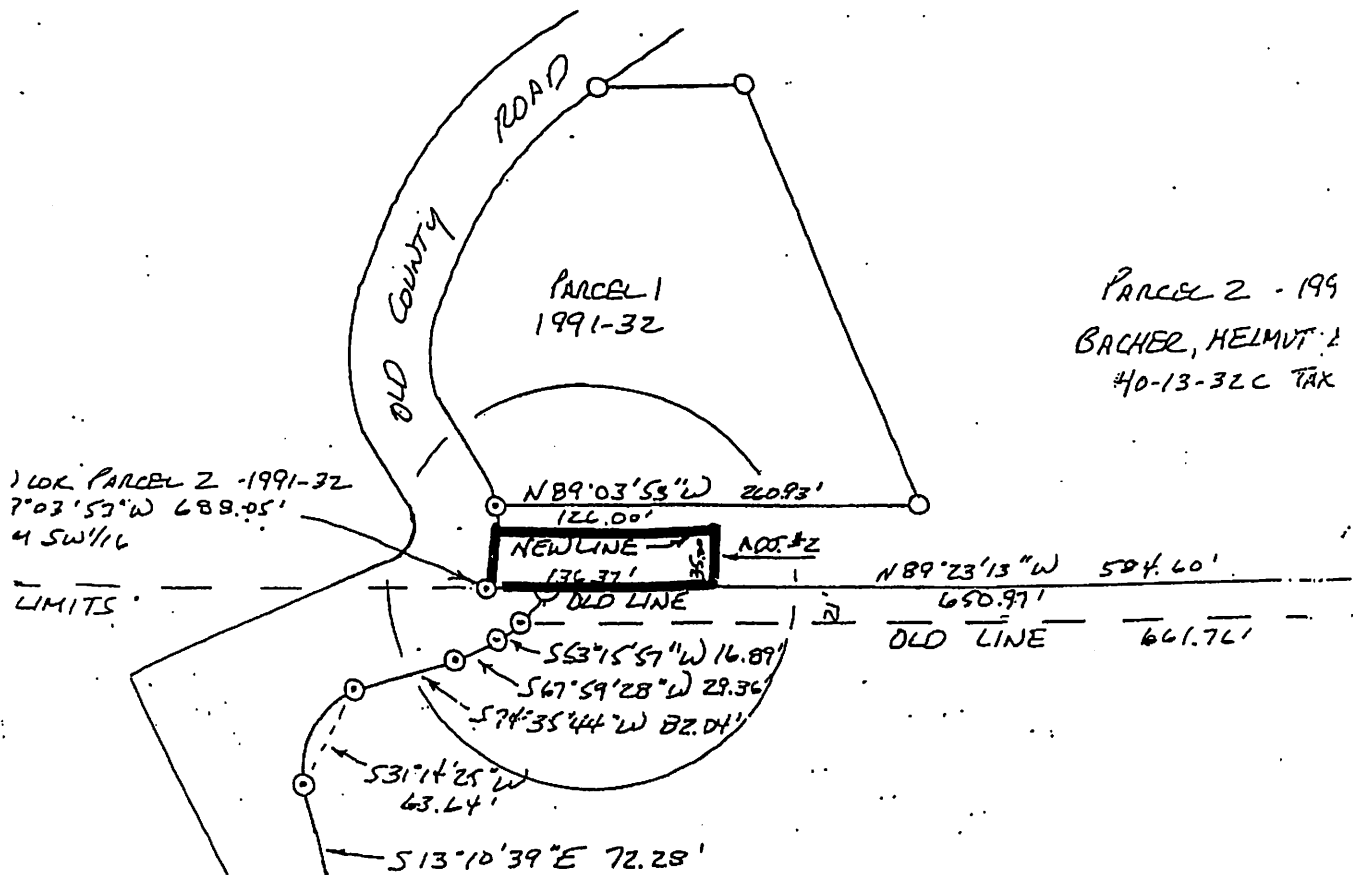 OLD COUNTY ROAD
PARCEL 1
1991-32
PARCEL 2 - 199
BACHER, HELMUT
40-13-32C TAX
PARCEL 2 -1991-32
°03'53"W 688.05'
SW 1/16
LIMITS
N89°03'53"W 260.93'
126.00'
NEW LINE
35.00
ADJ. #2
136.37'
OLD LINE
N89°23'13"W 584.60'
650.97'
OLD LINE 661.76'
S53°15'57"W 16.89'
S67°59'28"W 29.36'
S74°35'44"W 82.04'
S31°14'25"W
63.64'
S13°10'39"E 72.28'